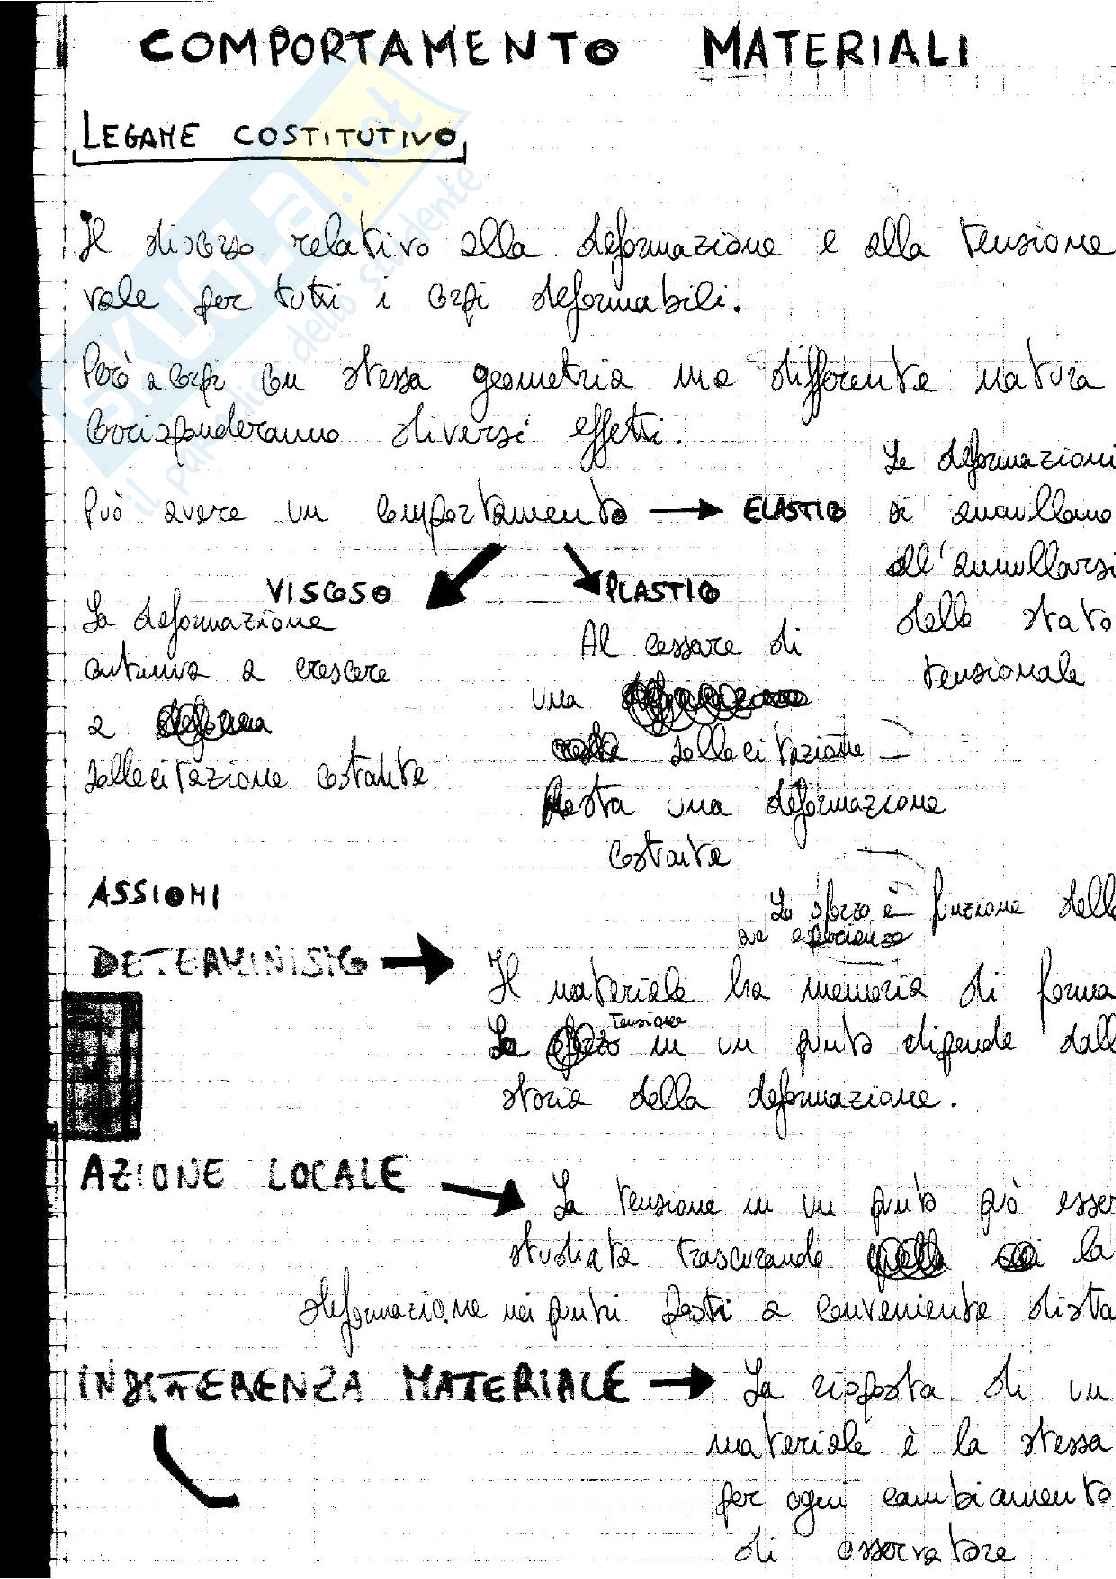 COMPORTAMENTO MATERIALI
LEGAME COSTITUTIVO
Il discorso relativo alla deformazione e alla tensione
vale per tutti i corpi deformabili.
Però a corpi con stessa geometria ma differente natura
corrisponderanno diversi effetti.
Può avere un comportamento → ELASTICO
Le deformazioni
si annullano
all'annullarsi
dello stato
tensionale
VISCOSO
La deformazione
continua a crescere
a
sollecitazione costante
PLASTICO
Al cessare di
una
sollecitazione
Resta una deformazione
costante
ASSIOMI
Lo sforzo è funzione della
DETERMINISTICO →
Il materiale ha memoria di forma
La tensione in un punto dipende dall
storia della deformazione.
AZIONE LOCALE →
La tensione in un punto può esser
studiata trascurando la
deformazione nei punti posti a conveniente dista
INDIFFERENZA MATERIALE → La risposta di un
materiale è la stessa
per ogni cambiamento
di osservatore
skuola.net
dello studente